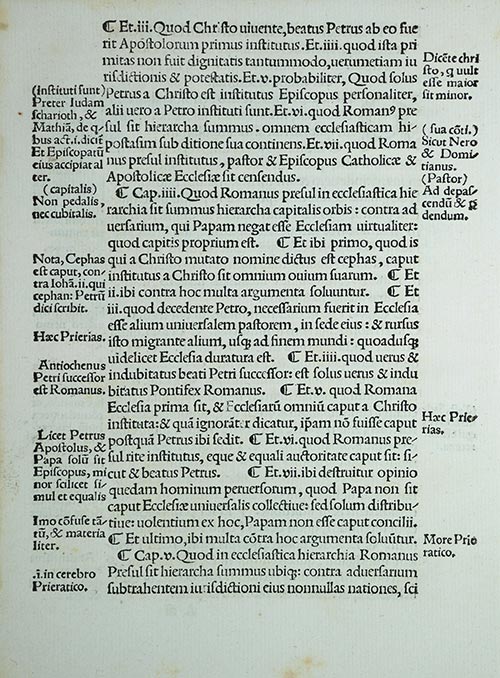 ¶ Et.iii.Quod Christo uiuente,beatus Petrus ab eo fue
rit Apostolorum primus institutus.Et.iiii.quod ista pri
mitas non fuit dignitatis tantummodo,uerumetiam iu
risdictionis & potestatis.Et.v.probabiliter, Quod solus
Petrus a Christo est institutus Episcopus personaliter,
alii uero a Petro instituti sunt.Et.vi.quod Romanꝰ pre
sul sit hierarcha summus.omnem ecclesiasticam hi-
postasim sub ditione sua continens.Et.vii.quod Roma
nus presul institutus, pastor & Episcopus Catholicæ &
Apostolicæ Ecclesiæ sit censendus.
¶ Cap.iiii.Quod Romanus presul in ecclesiastica hie
rarchia sit summus hierarcha capitalis orbis: contra ad
uersarium, qui Papam negat esse Ecclesiam uirtualiter:
quod capitis proprium est. ¶ Et ibi primo, quod is
qui a Christo mutato nomine dictus est cephas, caput
institutus a Christo sit omnium ouium suarum. ¶ Et
ii.ibi contra hoc multa argumenta soluuntur. ¶ Et
iii.quod decedente Petro, necessarium fuerit in Ecclesia
esse alium uniuersalem pastorem, in sede eius: & rursus
isto migrante alium, usq; ad finem mundi: quoadusq;
uidelicet Ecclesia duratura est. ¶ Et.iiii.quod uerus &
indubitatus beati Petri successor: est solus uerus & indu
bitatus Pontifex Romanus. ¶ Et.v. quod Romana
Ecclesia prima sit, & Ecclesiarũ omniũ caput a Christo
instituta: & quã ignorãter dicatur, ip̃am nõ fuisse caput
postquã Petrus ibi sedit. ¶ Et.vi.quod Romanus pre-
sul rite institutus, eque & equali auctoritate caput sit: si-
cut & beatus Petrus. ¶ Et.vii.ibi destruitur opinio
quedam hominum peruersorum, quod Papa non sit
caput Ecclesiæ uniuersalis collectiue: sed solum distribu-
tiue: uolentium ex hoc, Papam non esse caput concilii.
¶ Et ultimo, ibi multa cõtra hoc argumenta soluũtur.
¶ Cap.v. Quod in ecclesiastica hierarchia Romanus
Presul sit hierarcha summus ubiq;: contra aduersarium
subtrahentem iurisdictioni eius nonnullas nationes, sci
(Instituti sunt)
Preter Iudam
scharioth, &
Mathiã, de q̃
bus act.i.dicit̃
Et Episcopatũ
eius accipiat al
ter.
(capitalis)
Non pedalis,
nec cubitalis.
Nota, Cephas
est caput, con-
tra Iohã.ii.qui
cephan: Petrũ
dici scribit.
Hæc Prierias.
Antiochenus
Petri successor
est Romanus.
Licet Petrus
Apostolus, &
Papa solũ sit
Episcopus, mi
nor scilicet si-
mul et equalis
Imo cõfuse tã-
tũ, & materia
liter.
.i.in cerebro
Prieratico.
Dicẽte chri
sto, q̃ uult
esse maior
sit minor.
(sua cõti.)
Sicut Nero
& Domi-
tianus.
(Pastor)
Ad depas-
cendũ &
dendum.
Hæc Prie-
rias.
More Prie
ratico.